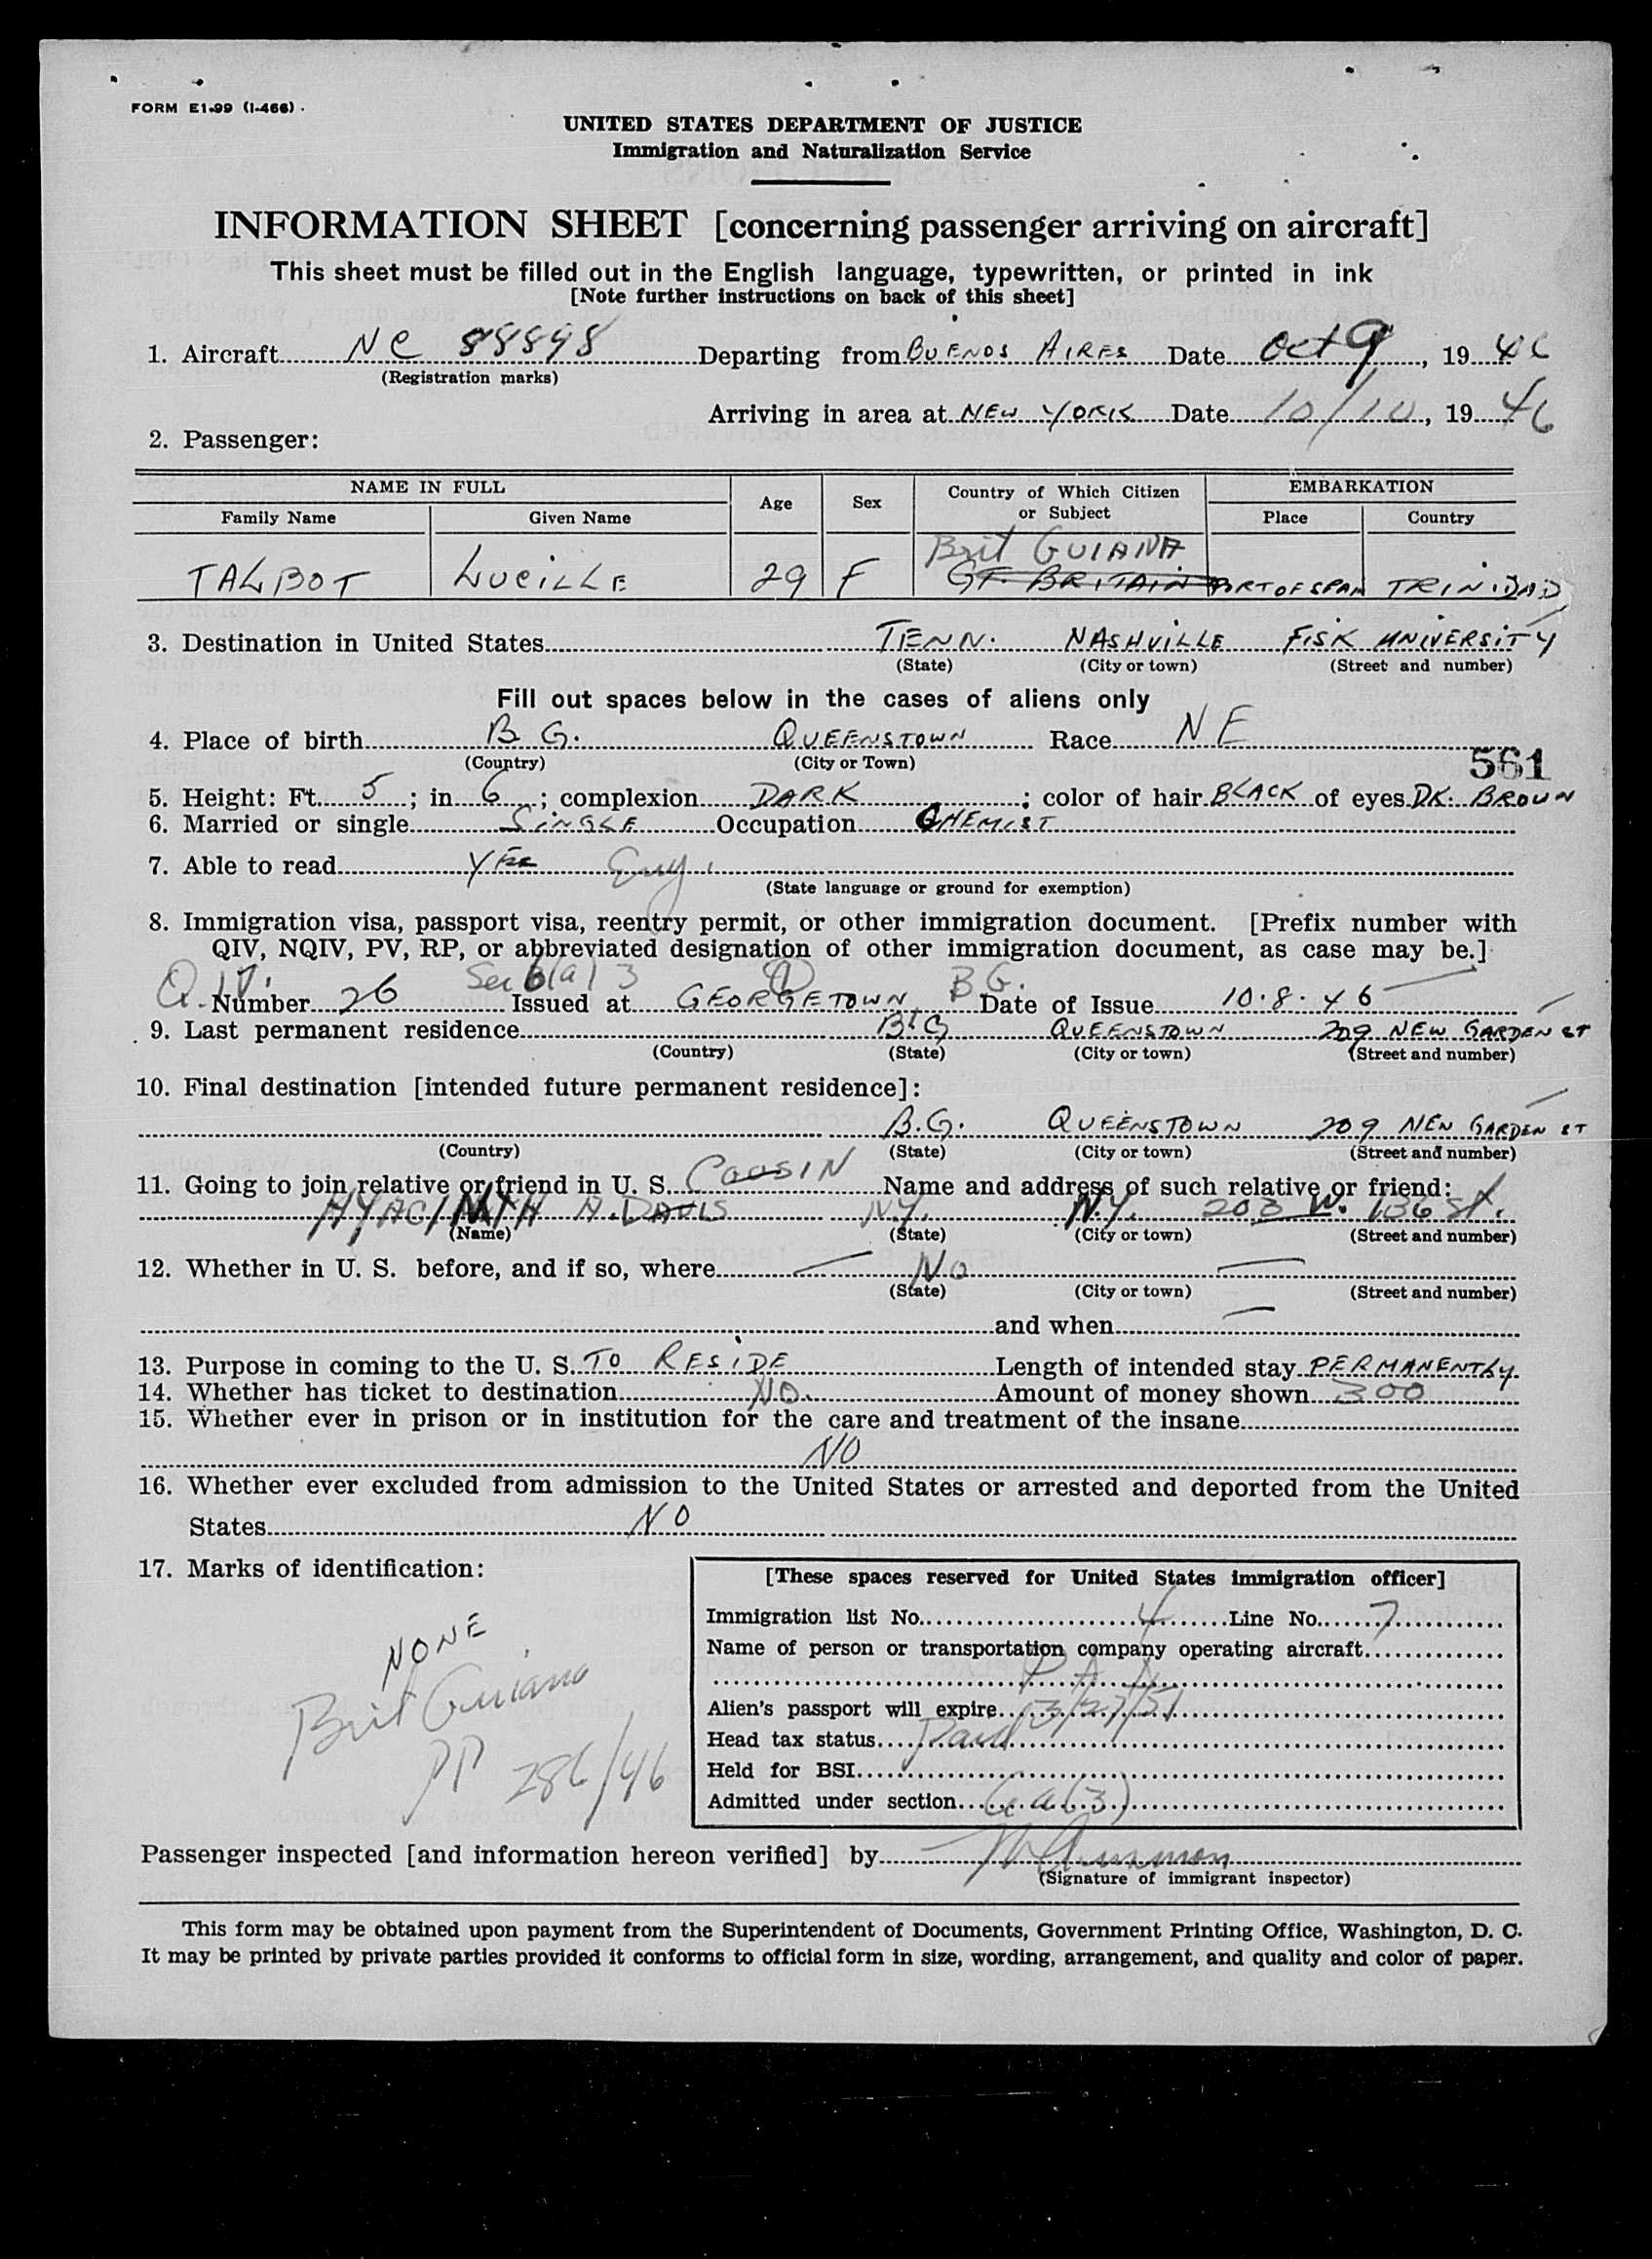 FORM E1-99 (I-466)
UNITED STATES DEPARTMENT OF JUSTICE
Immigration and Naturalization Service
INFORMATION SHEET [concerning passenger arriving on aircraft]
This sheet must be filled out in the English language, typewritten, or printed in ink
[Note further instructions on back of this sheet]
1. Aircraft NC 88898 Departing from BUENOS AIRES Date Oct 9, 1946
(Registration marks)
Arriving in area at NEW YORK Date 10/10, 1946
2. Passenger:
NAME IN FULL Age Sex Country of Which Citizen or Subject EMBARKATION
Family Name Given Name Place Country
Brit GUIANA
TALBOT LUCILLE 29 F GT. BRITAIN PORT OF SPAIN TRINIDAD
3. Destination in United States TENN. NASHVILLE FISK UNIVERSITY
(State) (City or town) (Street and number)
Fill out spaces below in the cases of aliens only
4. Place of birth B G. QUEENSTOWN Race NE
(Country) (City or Town)
561
5. Height: Ft. 5; in 6; complexion DARK; color of hair BLACK of eyes DK. BROWN
6. Married or single SINGLE Occupation CHEMIST
7. Able to read YES Eng.
(State language or ground for exemption)
8. Immigration visa, passport visa, reentry permit, or other immigration document. [Prefix number with
QIV, NQIV, PV, RP, or abbreviated designation of other immigration document, as case may be.]
Q.IV. Sec 6(a) 3 B G.
Number 26 Issued at GEORGETOWN Date of Issue 10.8.46
9. Last permanent residence B.G QUEENSTOWN 209 NEW GARDEN ST
(Country) (State) (City or town) (Street and number)
10. Final destination [intended future permanent residence]:
B.G. QUEENSTOWN 209 NEW GARDEN ST
(Country) (State) (City or town) (Street and number)
11. Going to join relative or friend in U. S. COUSIN Name and address of such relative or friend:
HYACINTH A. DAVIS N.Y. N.Y. 203 W. 136 St.
(Name) (State) (City or town) (Street and number)
12. Whether in U. S. before, and if so, where No
(State) (City or town) (Street and number)
and when
13. Purpose in coming to the U. S. TO RESIDE Length of intended stay PERMANENTLY
14. Whether has ticket to destination NO. Amount of money shown 300
15. Whether ever in prison or in institution for the care and treatment of the insane
NO
16. Whether ever excluded from admission to the United States or arrested and deported from the United
States NO
17. Marks of identification:
NONE
Brit Guiana
PP 286/46
[These spaces reserved for United States immigration officer]
Immigration list No. 4 Line No. 7
Name of person or transportation company operating aircraft
P. A. A.
Alien's passport will expire 3/27/51
Head tax status Paid
Held for BSI
Admitted under section 6 a (3)
Passenger inspected [and information hereon verified] by
(Signature of immigrant inspector)
This form may be obtained upon payment from the Superintendent of Documents, Government Printing Office, Washington, D. C.
It may be printed by private parties provided it conforms to official form in size, wording, arrangement, and quality and color of paper.